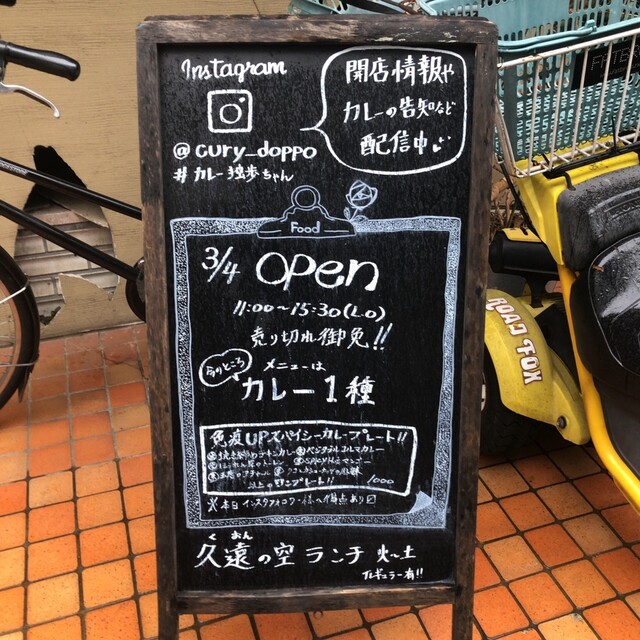 Instagram
開店情報や
カレーの告知など
配信中
@cury_doppo
#カレー独歩ちゃん
Food
3/4 open
11:00〜15:30(L.O)
売り切れ御免!!
今のところ
メニューは
カレー1種
免疫UPスパイシーカレープレート!!
以上のワンプレート!! 1000
※本日インスタフォロワー様へ得点あり
くおん
久遠の空ランチ 火〜土
レギュラー有!!
ROAD FOX